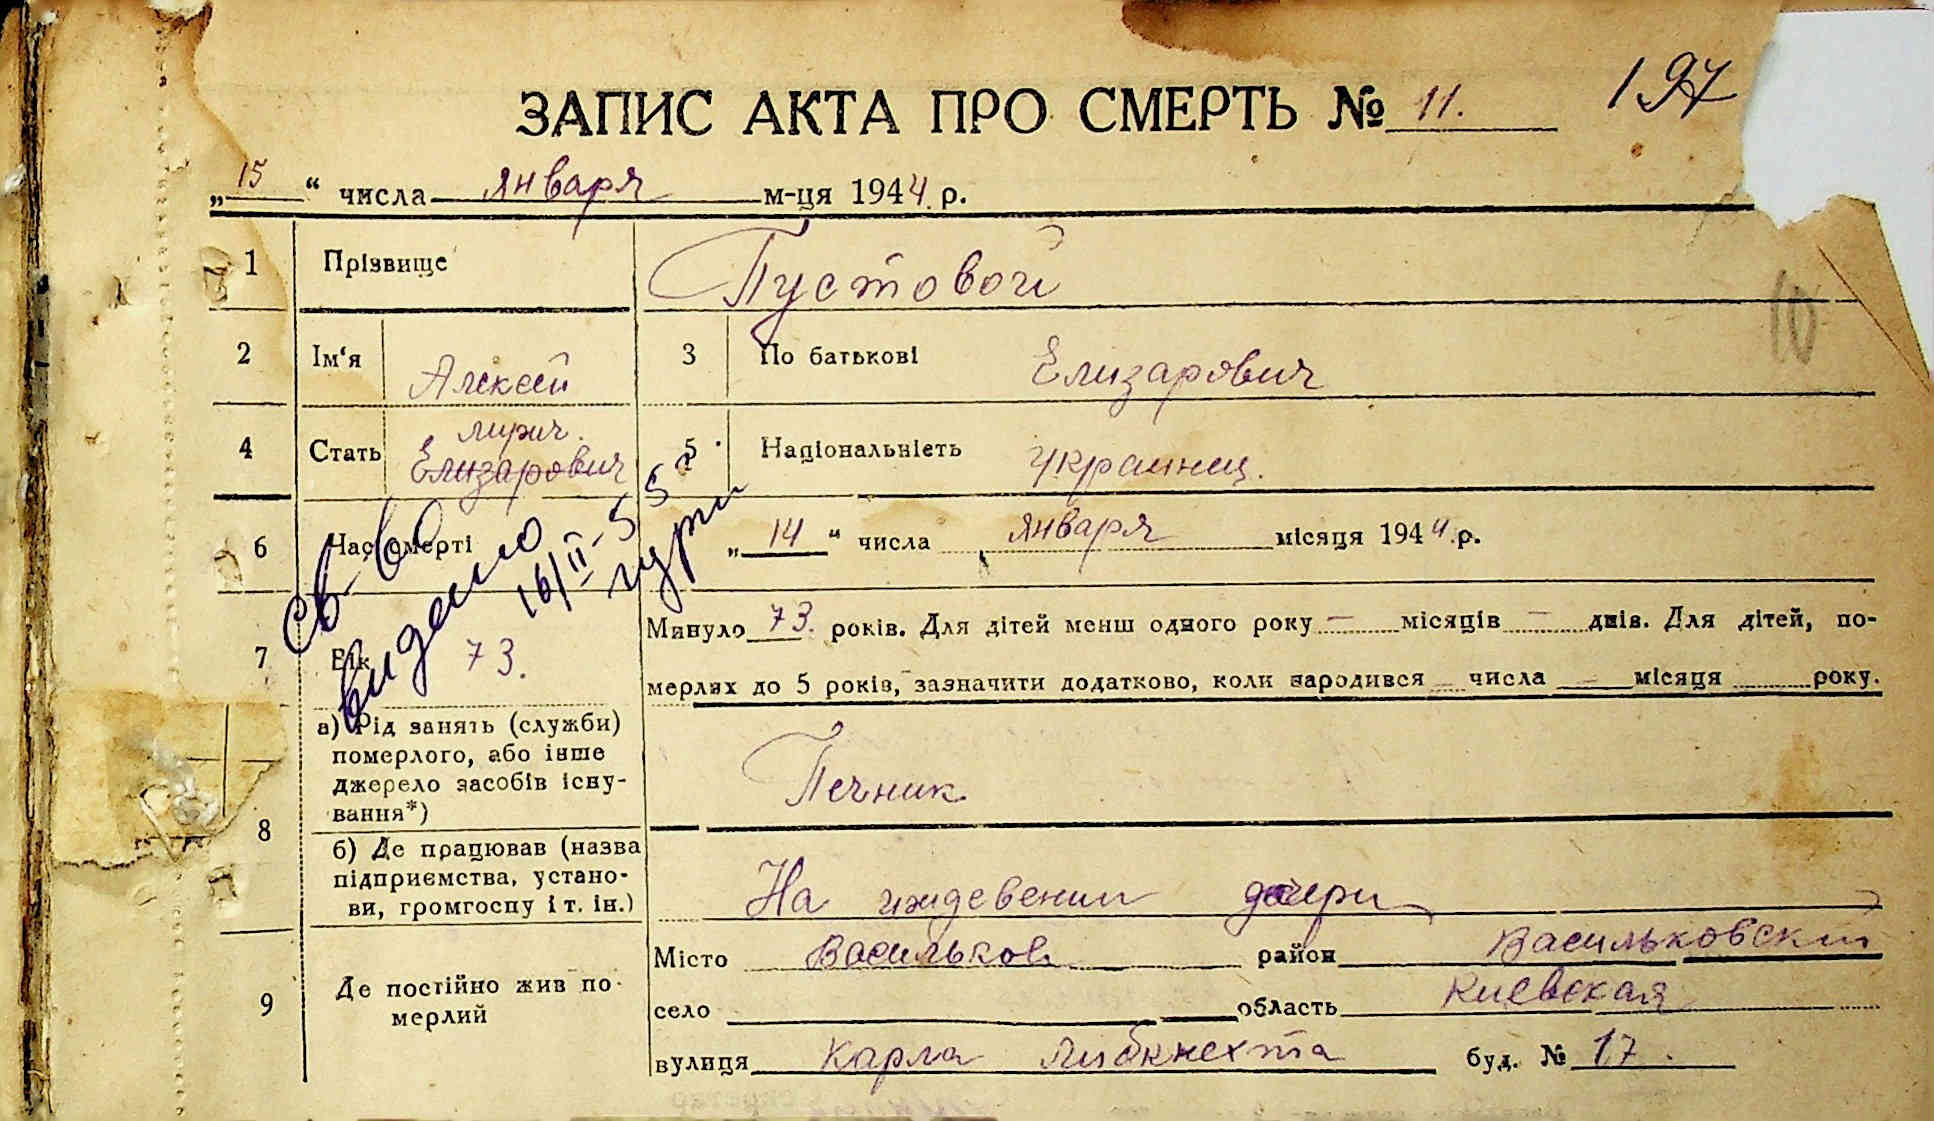 ЗАПИС АКТА ПРО СМЕРТЬ № 11. 197
„15“ числа января м-ця 1944 р.
1 Прізвище Пустовой
10
2 Ім‘я Алексей 3 По батькові Елизарович
4 Стать Елизарович 5 Національність Украинец.
6 Час смерті „14“ числа января місяця 1944 р.
Св-во
видено
16/II-55 г
7 Вік 73. Минуло 73. років. Для дітей менш одного року — місяців — днів. Для дітей, по-
мерлих до 5 років, зазначити додатково, коли народився — числа — місяця року.
8 а) Рід занять (служби)
померлого, або інше
джерело засобів існу-
вання*)
Печник
б) Де працював (назва
підприємства, устано-
ви, громгоспу і т. ін.)
На иждевении дочери
9 Де постійно жив по-
мерлий
Місто Васильков район Васильковский
село область Киевская
вулиця Карла Либкнехта буд. № 17.